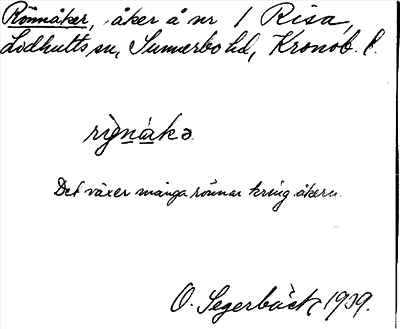 Rönnåker, åker å nr 1 Risa,
Lidhults sn, Sunnerbo hd, Kronob. l.
Det växer många rönnar kring åkern.
O. Segerbäck 1939.